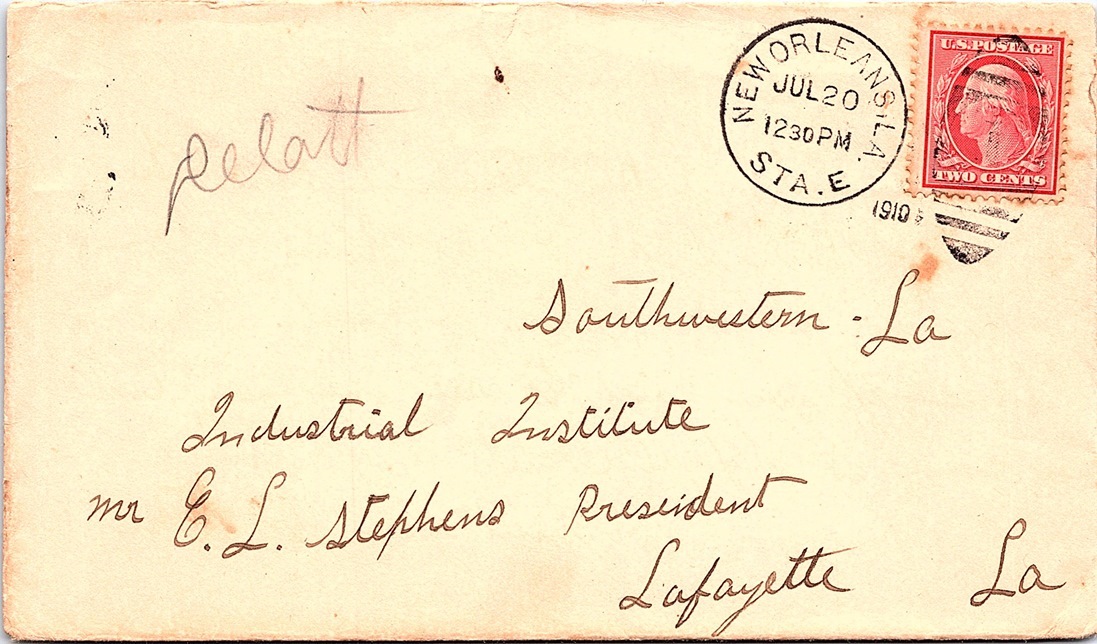 NEW ORLEANS, LA.
JUL 20
1230 PM
STA. E
1910
U.S. POSTAGE
TWO CENTS
Southwestern - La
Industrial Institute
Mr E. L. Stephens Preseident
Lafayette La